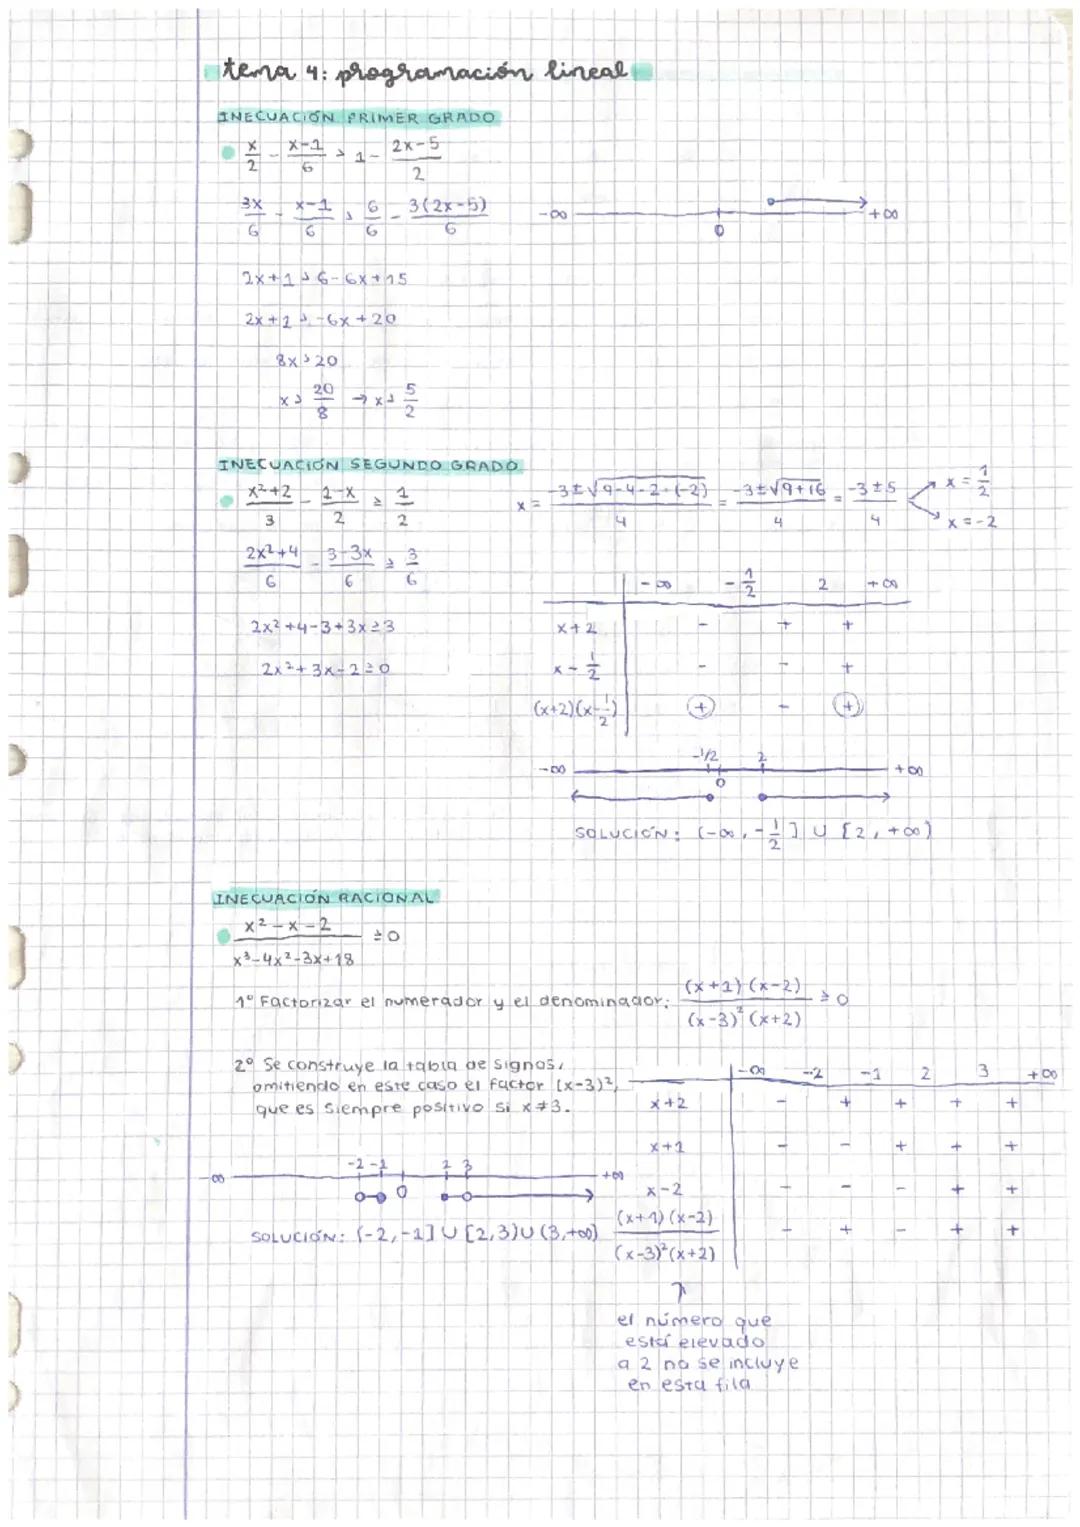 tema 4: programación lineal
INECUACIÓN PRIMER GRADO
x/2 - (x-1)/6 > 1 - (2x-5)/2
3x/6 - (x-1)/6 > 6/6 - 3(2x-5)/6
-∞ 0 +∞
2x+1 > 6-6x+15
2x+1 > -6x+20
8x > 20
x > 20/8 → x > 5/2
INECUACIÓN SEGUNDO GRADO
(x²+2)/3 - (1-x)/2 ≥ 1/2
x = (-3±√(9-4·2·(-2)))/4 = (-3±√(9+16))/4 = (-3±5)/4
x = 1/2
x = -2
(2x²+4)/6 - (3-3x)/6 ≥ 3/6
2x²+4-3+3x≥3
2x²+3x-2≥0
-∞ -1/2 2 +∞
x+2 - + +
x-1/2 - - +
(x+2)(x-1/2) + - +
-1/2 2
-∞ 0 +∞
SOLUCIÓN: (-∞, -1/2] ∪ [2, +∞)
INECUACIÓN RACIONAL
(x²-x-2)/(x³-4x²-3x+18) ≥ 0
1º Factorizar el numerador y el denominador: (x+1)(x-2)/((x-3)²(x+2)) ≥ 0
2º Se construye la tabla de signos,
omitiendo en este caso el factor (x-3)²,
que es siempre positivo si x≠3.
-∞ -2 -1 2 3 +∞
x+2 - + + + +
x+1 - - + + +
x-2 - - - + +
(x+1)(x-2)/((x-3)²(x+2)) - + - + +
-2 -1 2 3
-∞ 0 +∞
SOLUCIÓN: (-2,-1] ∪ [2,3) ∪ (3,+∞)
el número que
está elevado
a 2 no se incluye
en esta fila